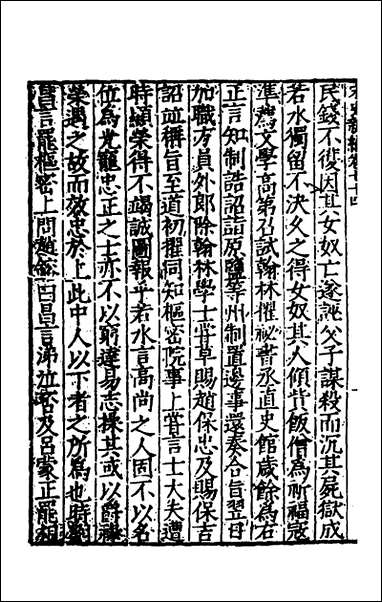 宋史新編卷七十四
民錢不獲因其女奴亡遂誣父子謀殺而沉其屍獄成
若水獨留不決久之得女奴其人傾貲飯僧為祈福寇
準薦文學高第召試翰林擢祕書丞直史館歲餘為右
正言知制誥詔詣原鹽等州制置邊事還奏合旨翌母
加職方員外郎除翰林學士嘗草賜趙保忠及賜保吉
詔並稱旨至道初擢同知樞密院事上嘗言士大夫遭
時績榮得不竭誠圖報乎若水言高尚之人固不以名
位為光寵忠正之士亦不以窮達易志操其或以爵祿
榮遇之故而效忠於上此中人以下者之所為也時劉
昌言罷樞密上問趙鎔曰昌言涕泣否及呂蒙正罷相